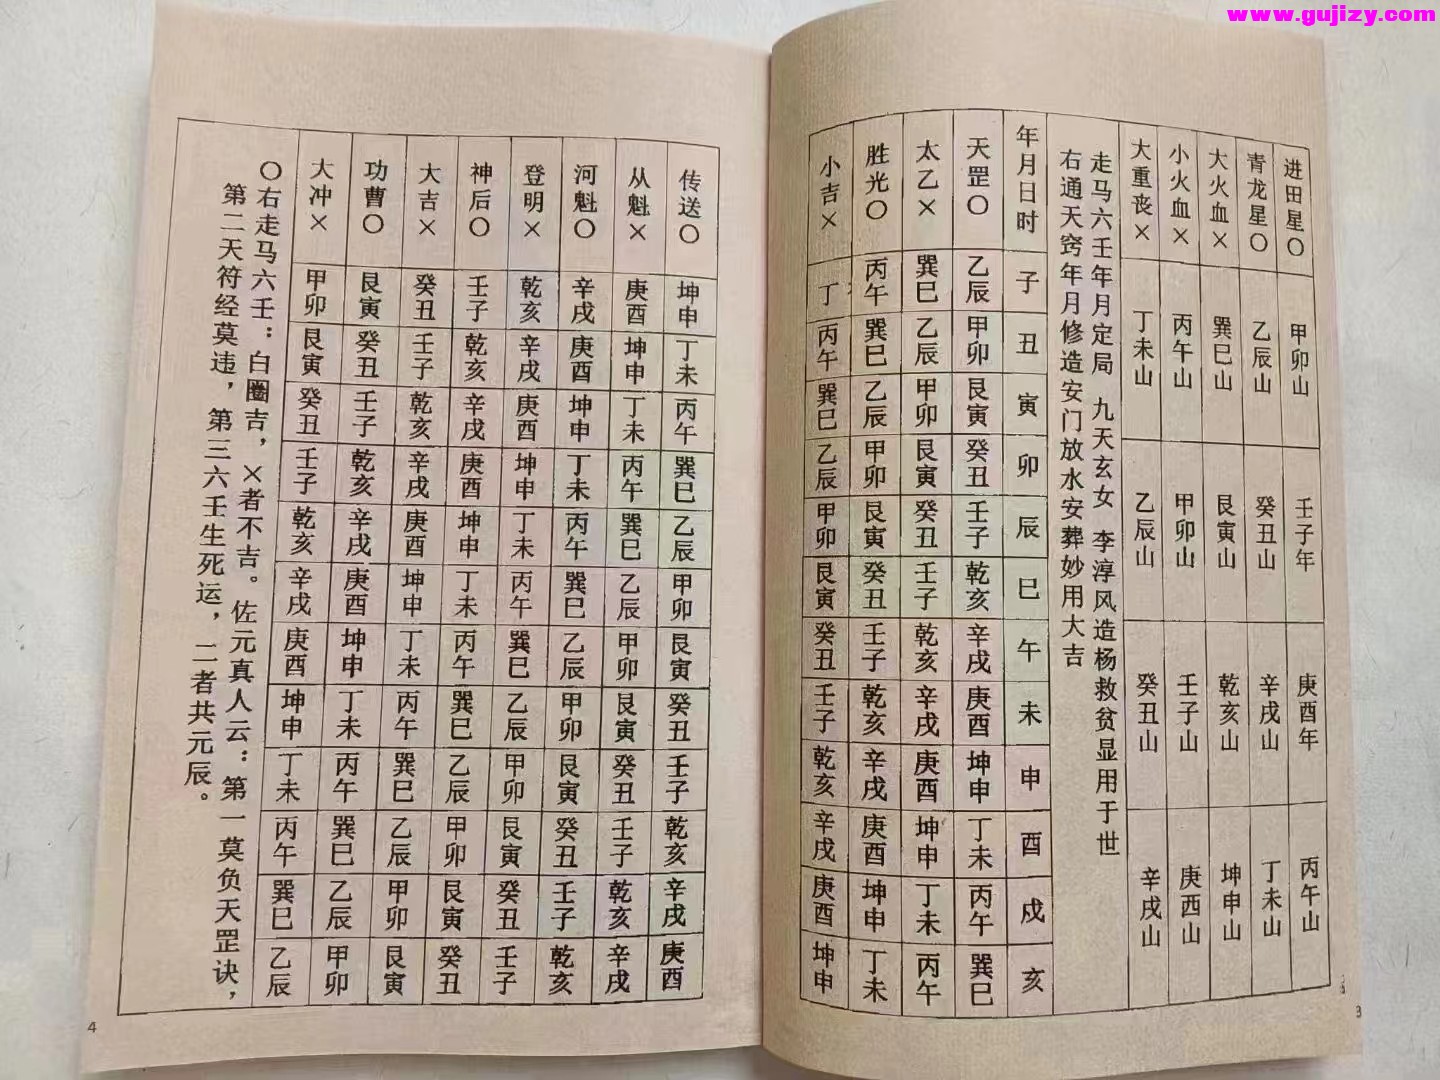 www.gujizy.com
进田星〇 甲卯山 壬子年 庚酉年 丙午山
青龙星〇 乙辰山 癸丑山 辛戌山 丁未山
大火血× 巽巳山 艮寅山 乾亥山 坤申山
小火血× 丙午山 甲卯山 壬子山 庚酉山
大重丧× 丁未山 乙辰山 癸丑山 辛戌山
走马六壬年月定局 九天玄女 李淳风造杨救贫显用于世
右通天窍年月修造安门放水安葬妙用大吉
年月日时 子 丑 寅 卯 辰 巳 午 未 申 酉 戌 亥
天罡〇 乙辰 甲卯 艮寅 癸丑 壬子 乾亥 辛戌 庚酉 坤申 丁未 丙午 巽巳
太乙× 巽巳 乙辰 甲卯 艮寅 癸丑 壬子 乾亥 辛戌 庚酉 坤申 丁未 丙午
胜光〇 丙午 巽巳 乙辰 甲卯 艮寅 癸丑 壬子 乾亥 辛戌 庚酉 坤申 丁未
小吉× 丁 丙午 巽巳 乙辰 甲卯 艮寅 癸丑 壬子 乾亥 辛戌 庚酉 坤申
3
传送〇 坤申 丁未 丙午 巽巳 乙辰 甲卯 艮寅 癸丑 壬子 乾亥 辛戌 庚酉
从魁× 庚酉 坤申 丁未 丙午 巽巳 乙辰 甲卯 艮寅 癸丑 壬子 乾亥 辛戌
河魁〇 辛戌 庚酉 坤申 丁未 丙午 巽巳 乙辰 甲卯 艮寅 癸丑 壬子 乾亥
登明× 乾亥 辛戌 庚酉 坤申 丁未 丙午 巽巳 乙辰 甲卯 艮寅 癸丑 壬子
神后〇 壬子 乾亥 辛戌 庚酉 坤申 丁未 丙午 巽巳 乙辰 甲卯 艮寅 癸丑
大吉× 癸丑 壬子 乾亥 辛戌 庚酉 坤申 丁未 丙午 巽巳 乙辰 甲卯 艮寅
功曹〇 艮寅 癸丑 壬子 乾亥 辛戌 庚酉 坤申 丁未 丙午 巽巳 乙辰 甲卯
大冲× 甲卯 艮寅 癸丑 壬子 乾亥 辛戌 庚酉 坤申 丁未 丙午 巽巳 乙辰
〇右走马六壬：白圈吉，×者不吉。佐元真人云：第一莫负天罡诀，
第二天符经莫违，第三六壬生死运，二者共元辰。
4